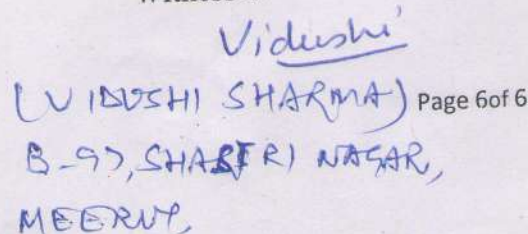 Vidushi
(VIDUSHI SHARMA) Page 6of 6
B-97, SHASTRI NAGAR,
MEERUT,